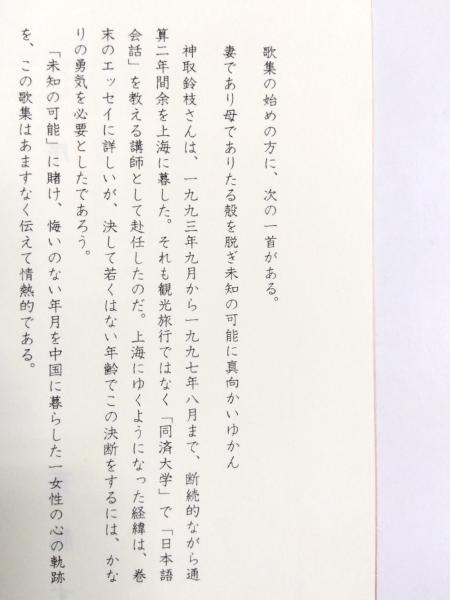 歌集の始めの方に、次の一首がある。
妻であり母でありたる殻を脱ぎ未知の可能に真向かいゆかん
神取鈴枝さんは、一九九三年九月から一九九七年八月まで、断続的ながら通
算二年間余を上海に暮した。それも観光旅行ではなく「同済大学」で「日本語
会話」を教える講師として赴任したのだ。上海にゆくようになった経緯は、巻
末のエッセイに詳しいが、決して若くはない年齢でこの決断をするには、かな
りの勇気を必要としたであろう。
「未知の可能」に賭け、悔いのない年月を中国に暮らした一女性の心の軌跡
を、この歌集はあますなく伝えて情熱的である。